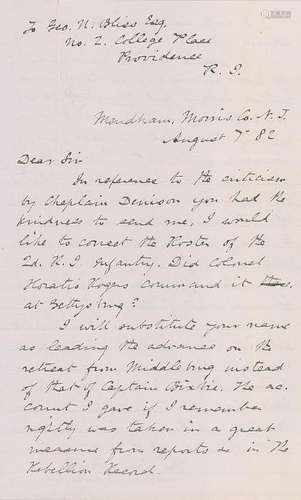 To Geo. N. Bliss Esq,
No. 2. College Place
Providence
R. I.
Mendham, Morris Co. N. J.
August 7' 82
Dear Sir
In reference to the criticism
by Chaplain Denison you had the
kindness to send me, I would
like to correct the Roster of the
2d. R. I. Infantry. Did Colonel
Horatio Rogers command it
at Gettysburg?
I will substitute your name
as leading the advance on the
retreat from Middleburg instead
of that of Captain Bixbie. The ac-
count I gave if I remember
rightly was taken in a great
measure from reports as in the
Rebellion Record.